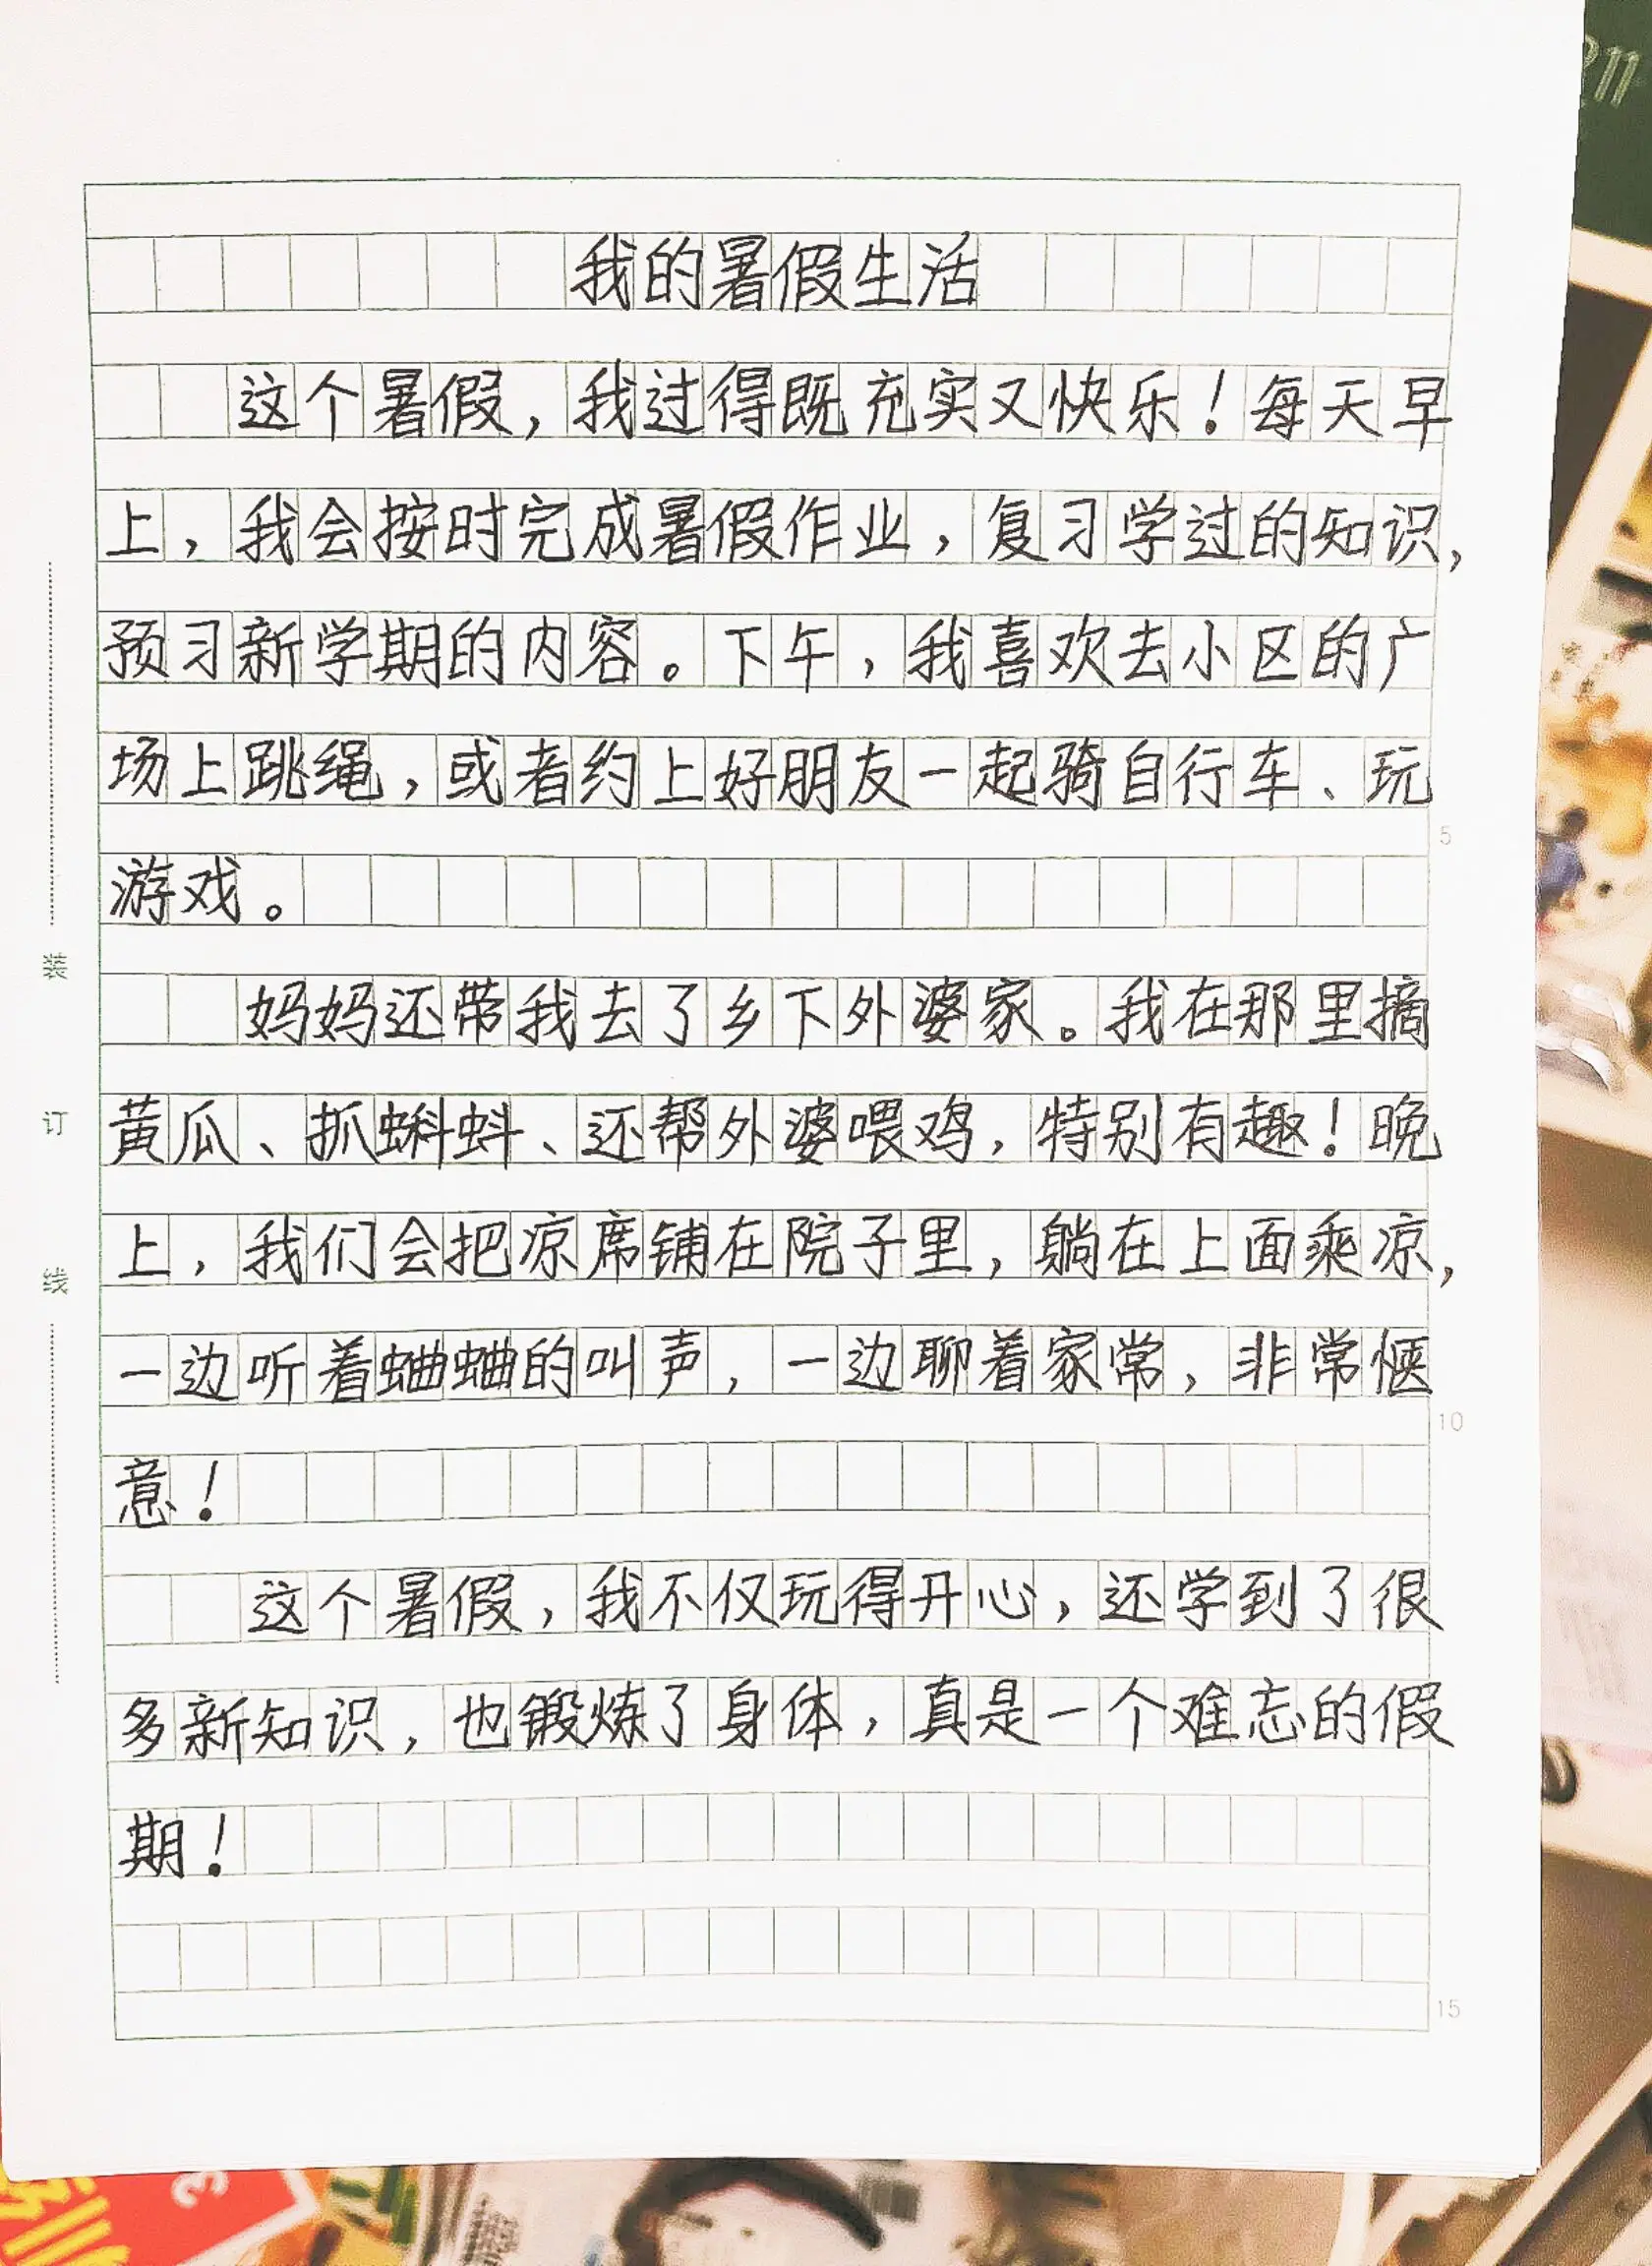 我的暑假生活
这个暑假，我过得既充实又快乐！每天早
上，我会按时完成暑假作业，复习学过的知识，
预习新学期的内容。下午，我喜欢去小区的广
场上跳绳，或者约上好朋友一起骑自行车、玩
游戏。
5
妈妈还带我去了乡下外婆家。我在那里摘
黄瓜、抓蝌蚪、还帮外婆喂鸡，特别有趣！晚
上，我们会把凉席铺在院子里，躺在上面乘凉，
一边听着蛐蛐的叫声，一边聊着家常，非常惬
10
意！
这个暑假，我不仅玩得开心，还学到了很
多新知识，也锻炼了身体，真是一个难忘的假
期！
15
装
订
线